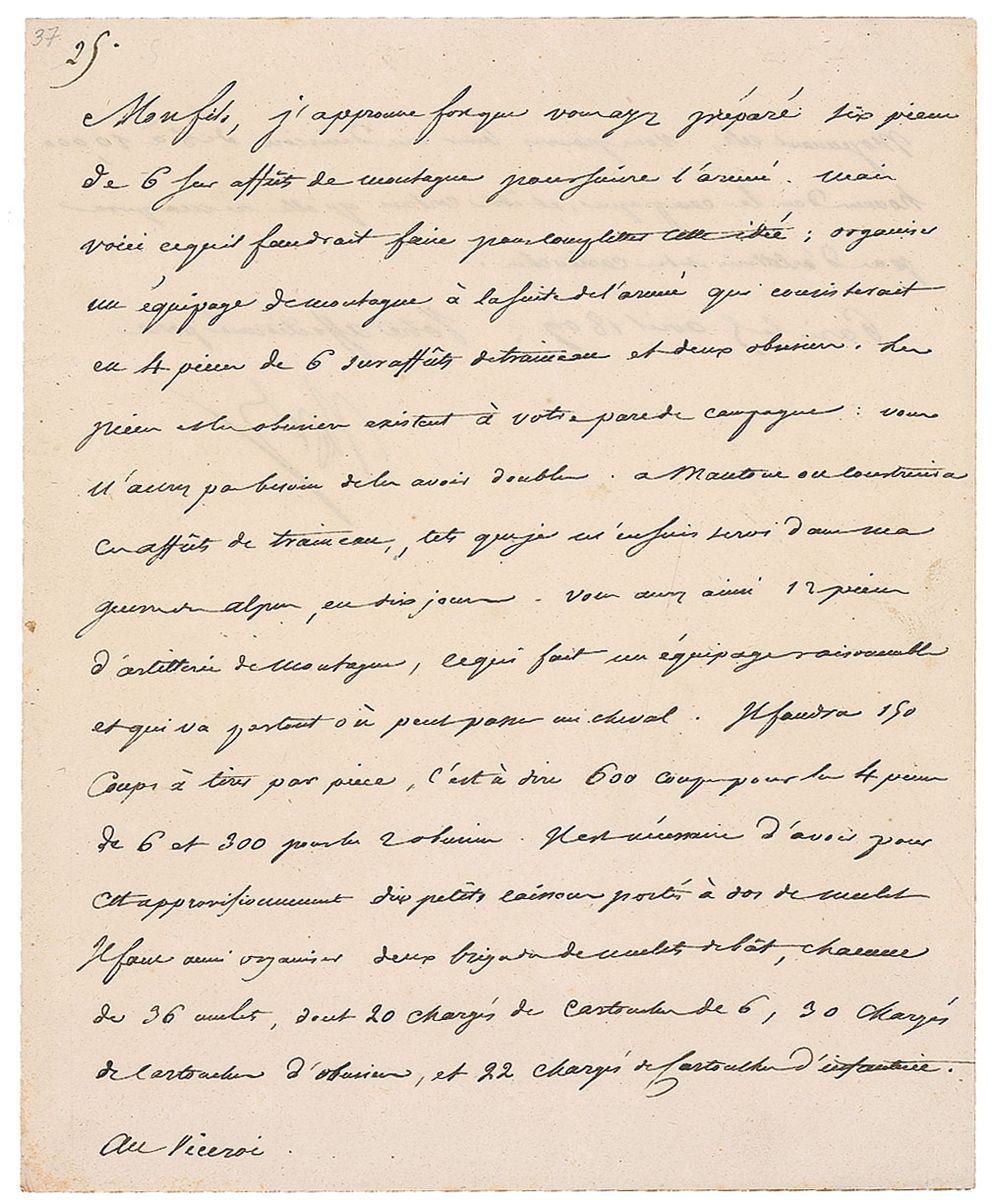 37
25.
Mon fils, j'approuve fort que vous ayez préparé six pieces
de 6 sur affûts de montagne pour suivre l'armée. mais
voici ce qu'il faudrait faire pour completter cette idée ; organiser
un équipage de montagne à la suite de l'armée qui consisterait
en 4 pieces de 6 sur affûts de traineau et deux obusiers. Les
pieces et les obusiers existent à votre parc de campagne : vous
n'aurez pas besoin de les avoir doubles. a Mantoue on construira
ces affûts de traineau, tels que je m'en suis servi dans ma
guerre des alpes, en dix jours. Vous aurez ainsi 12 pieces
d'artillerie de montagne, ce qui fait un équipage raisonnable
et qui va partout où peut passer un cheval. Il faudra 150
Coups à tirer par piece, c'est à dire 600 coups pour les 4 pieces
de 6 et 300 pour les 2 obusiers. Il est nécessaire d'avoir pour
cet approvisionnement dix petits caissons portés à dos de mulet
Il faut aussi organiser deux brigades de mulets de bât, chacune
de 36 mulets, dont 20 chargés de Cartouches de 6, 30 chargés
de Cartouches d'obusiers, et 22 chargés de Cartouches d'infanterie.
Au Viceroi.